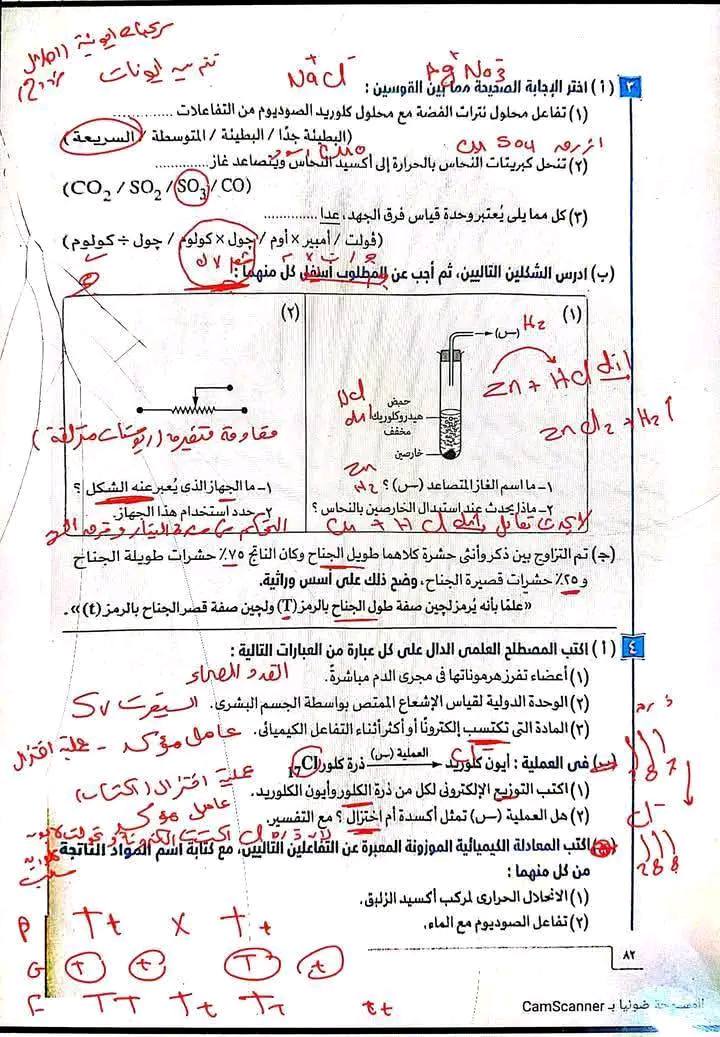 سريعة أيونية
تتم بين أيونات
Na⁺Cl⁻ Ag⁺No₃⁻
٣ (أ) اختر الإجابة الصحيحة مما بين القوسين :
(١) تفاعل محلول نترات الفضة مع محلول كلوريد الصوديوم من التفاعلات ..............
(البطيئة جدًا / البطيئة / المتوسطة / السريعة)
أزرق Cu SO4 CuO أسود
(٢) تنحل كبريتات النحاس بالحرارة إلى أكسيد النحاس ويتصاعد غاز..............
(CO₂ / SO₂ / SO₃ / CO)
(٣) كل مما يلى يُعتبر وحدة قياس فرق الجهد، عدا ..............
(ڤولت / أمبير × أوم / چول × كولوم / چول ÷ كولوم)
(ب) ادرس الشكلين التاليين، ثم أجب عن المطلوب أسفل كل منهما :
(١)
(س) H₂
Zn + HCl dil
ZnCl₂ + H₂↑
HCl dil
حمض
هيدروكلوريك
مخفف
Zn
خارصين
١- ما اسم الغاز المتصاعد (س) ؟ H₂
٢- ماذا يحدث عند استبدال الخارصين بالنحاس ؟
لا يحدث تفاعل Cu + HCl dil
(٢)
مقاومة متغيرة (ريوستات منزلقة)
١- ما الجهاز الذى يُعبر عنه الشكل ؟
٢- حدد استخدام هذا الجهاز.
التحكم فى شدة التيار وفرق الجهد
(جـ) تم التزاوج بين ذكر وأنثى حشرة كلاهما طويل الجناح وكان الناتج ٧٥٪ حشرات طويلة الجناح
و ٢٥٪ حشرات قصيرة الجناح، وضح ذلك على أسس وراثية.
«علمًا بأنه يُرمز لچين صفة طول الجناح بالرمز (T) ولچين صفة قصر الجناح بالرمز (t)».
٤ (أ) اكتب المصطلح العلمى الدال على كل عبارة من العبارات التالية :
(١) أعضاء تفرز هرموناتها فى مجرى الدم مباشرةً. الغدد الصماء
(٢) الوحدة الدولية لقياس الإشعاع الممتص بواسطة الجسم البشرى. السيفرت Sv
(٣) المادة التى تكتسب إلكترونًا أو أكثر أثناء التفاعل الكيميائى. عامل مؤكسد - عملية اختزال
(ب) فى العملية : أيون كلوريد العملية (س) ذرة كلور ₁₇Cl
(١) اكتب التوزيع الإلكترونى لكل من ذرة الكلور وأيون الكلوريد. عملية اختزال (اكتساب)
(٢) هل العملية (س) تمثل أكسدة أم اختزال ؟ مع التفسير. عامل مؤكسد
2 8 7
Cl⁻
2 8 8
(جـ) اكتب المعادلة الكيميائية الموزونة المعبرة عن التفاعلين التاليين، مع كتابة اسم المواد الناتجة
من كل منهما :
(١) الانحلال الحرارى لمركب أكسيد الزئبق.
(٢) تفاعل الصوديوم مع الماء.
P Tt X Tt
G T t T t
F TT Tt Tt tt
٨٢
الممسوحة ضوئيا بـ CamScanner